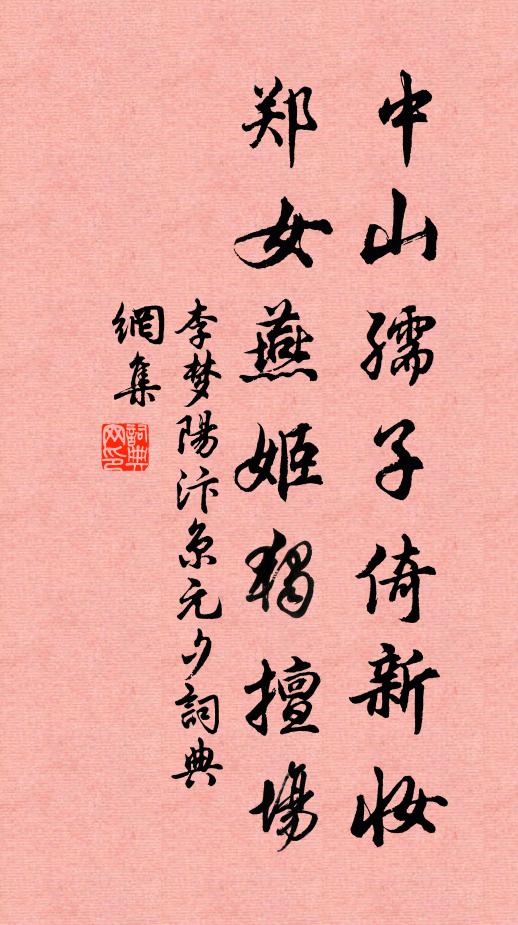 中山孺子倚新妆
郑女燕姬独擅場
李梦陽汴京元夕詞典
網集
詞典网印